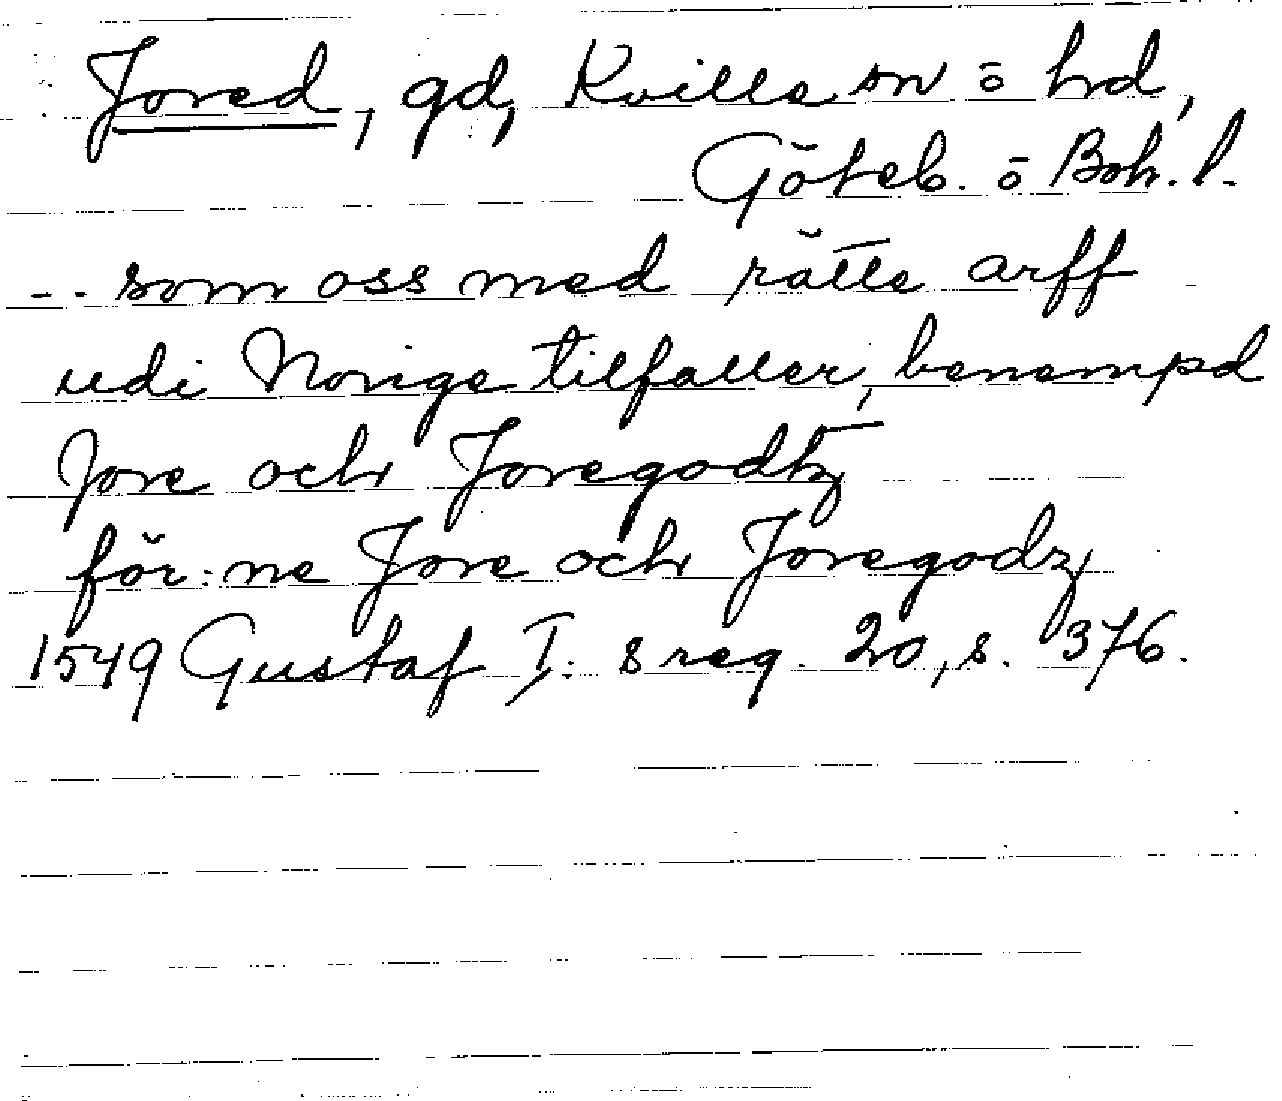 Jored, gd, Kville sn o hd,
Göteb. o Boh. l.
-- som oss med rätte arff
udi Norige tilfaller, benempd
Jore och Joregodtz
för:ne Jore och Joregodz
1549 Gustaf I:s reg. 20, s. 376.